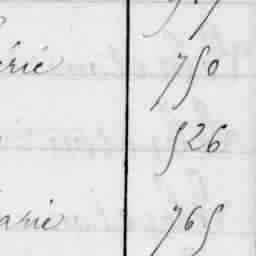 érie 750
526
arie 765